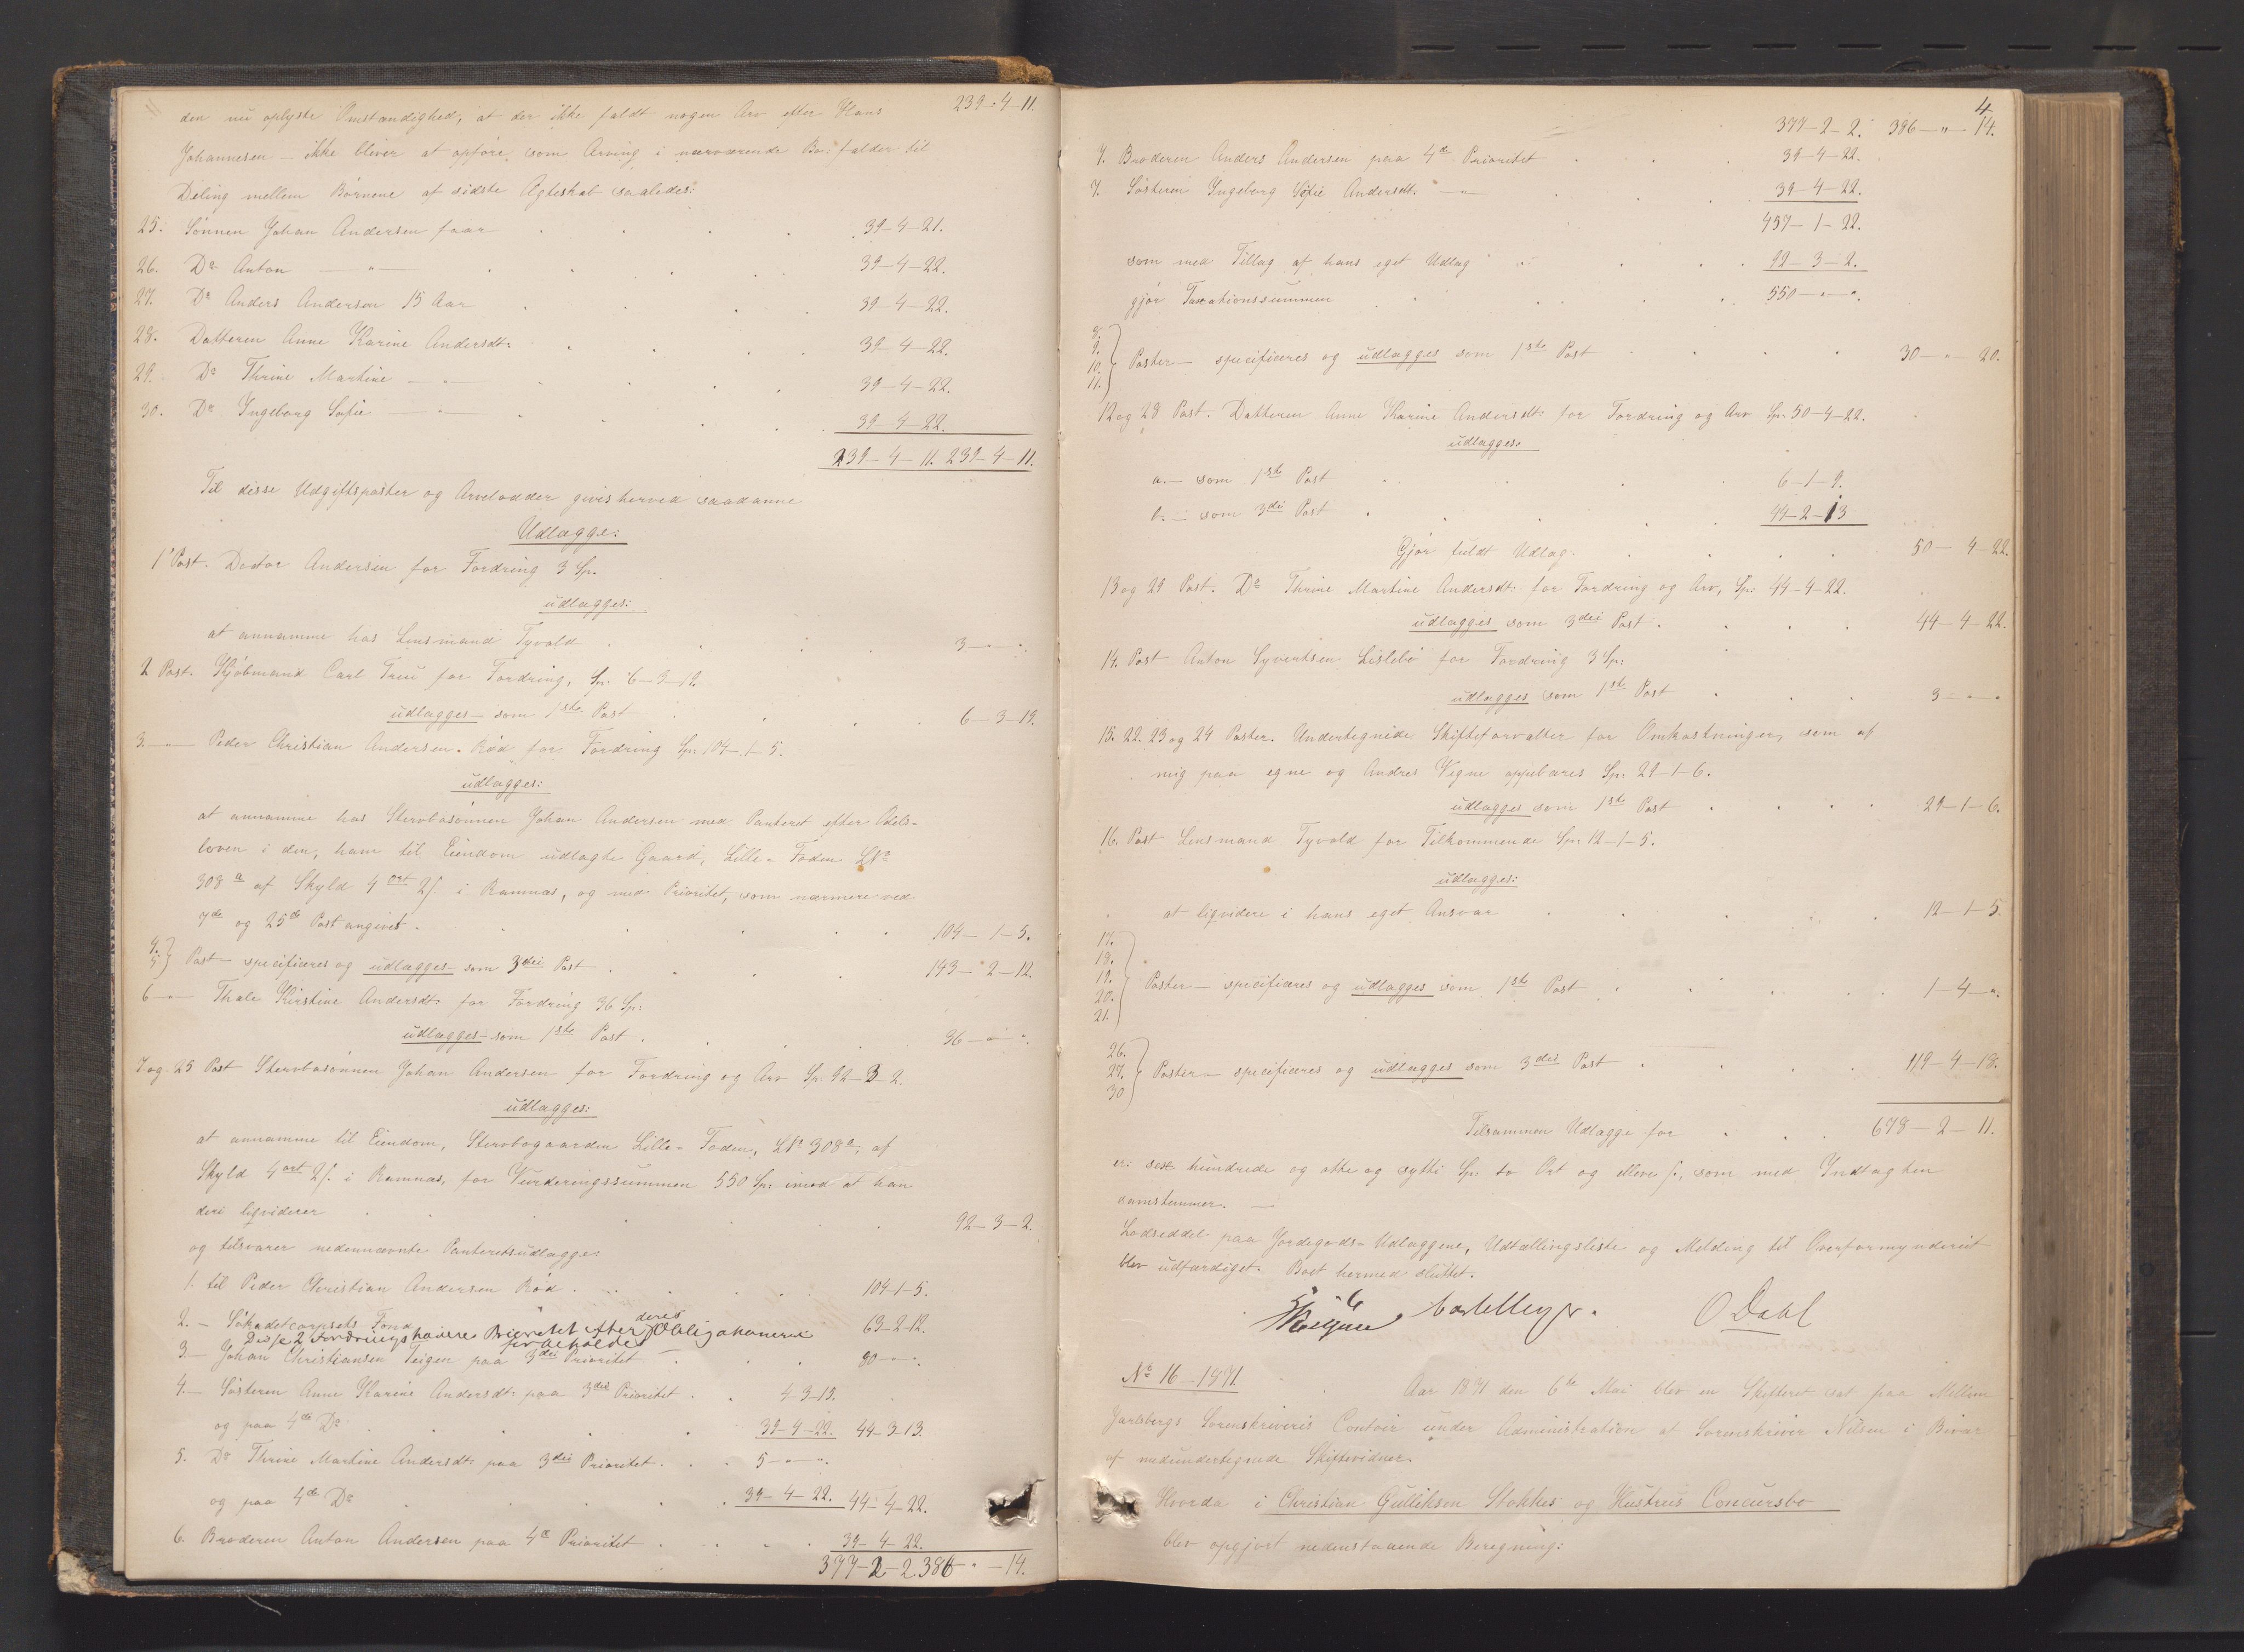 den nu oplyste Omstændighed, at der ikke faldt nogen Arv efter Hans 239-4-11.
Johannesen - ikke bliver at opføre som Arving i nærværende Bo: falder til
Deling mellem Børnene af sidste Ægteskab saaledes:
25. Sønnen Johan Andersen faar 39-4-21.
26. Do Anton - " - 39-4-22.
27. Do Anders Andersen 15 Aar 39-4-22.
28. Datteren Anne Karine Andersdt: 39-4-22.
29. Do Thrine Martine - " - 39-4-22.
30. Do Ingeborg Sofie - " - 39-4-22.
239-4-11. 239-4-11.
Til disse Udgiftsposter og Arvelodder gives herved saadanne
Udlægge:
1' Post. Doctor Andersen for Fordring 3 Sp.
udlægges:
at annamme hos Lensmand Tyvold 3-"-".
2 Post. Kjøbmand Carl Treu for Fordring, Sp: 6-3-19.
udlægges - som 1ste Post 6-3-19.
3. - " - Peder Christian Andersen Rød for Fordring Sp: 104-1-5.
udlægges:
at annamme hos Stervbosønnen Johan Andersen med Panteret efter Odels-
loven i den, ham til Eiendom udlagte Gaard, Lille-Foden LNo
308a af Skyld 4 ort 2 s. i Ramnæs, og med Prioritet, som nærmere ved
7de og 25de Post angivet. 104-1-5.
4. 5. } Post - specificeres og udlægges - som 3die Post 143-2-12.
6 - " - Thale Kirstine Andersdt: for Fordring 36 Sp:
udlægges - som 1ste Post. 36-"-".
7 og 25 Post Stervbosønnen Johan Andersen for Fordring og Arv Sp: 92-3-2.
udlægges:
at annamme til Eiendom, Stervbogaarden Lille-Foden, LNo 308a, af
Skyld 4 ort 2 s. i Ramnæs, for Vurderingssummen 550 Sp: imod at han
deri liqviderer 92-3-2.
og tilsvarer nedennævnte Panteretsudlægge:
1. til Peder Christian Andersen Rød 104-1-5.
2. - Søkadetcorpsets Fond 63-2-12.
Disse 2 Fordringshavere Prioritet efter deres Obligationer
forbeholdes
3. - Johan Christiansen Teigen paa 3die Prioritet 80-"-".
4. - Søsteren Anne Karine Andersdt: paa 3die Prioritet 4-3-13.
og paa 4de Do 39-4-22. 44-3-13.
5. Do Thrine Martine Andersdt: paa 3die Prioritet 5-"-".
og paa 4de Do 39-4-22. 44-4-22.
6. Broderen Anton Andersen paa 4de Prioritet 39-4-22.
377-2-2. 386-"-14.
4.
377-2-2. 386-"-14.
7. Broderen Anders Andersen paa 4de Prioritet 39-4-22.
7. Søsteren Ingeborg Sofie Andersdt: - " - 39-4-22.
457-1-22.
som med Tillæg af hans eget Udlæg 92-3-2.
gjør Taxationssummen 550-"-".
8. 9. 10. 11. } Poster - specificeres og udlægges som 1ste Post 30-"-20.
12 og 28 Post. Datteren Anne Karine Andersdt: for Fordring og Arv Sp: 50-4-22.
udlægges:
a. - som 1ste Post 6-1-9.
b. - som 3die Post 44-2-13
Gjør fuldt Udlæg. 50-4-22.
13 og 29 Post. Do Thrine Martine Andersdt: for Fordring og Arv, Sp: 44-4-22.
udlægges som 3die Post. 44-4-22.
14. Post Anton Syvertsen Lislebø for Fordring 3 Sp:
udlægges som 1ste Post 3-"-"
15. 22. 23 og 24 Poster. Undertegnede Skifteforvalter for Omkostninger, som af
mig paa egne og Andres Vegne oppebæres Sp: 29-1-6.
udlægges som 1ste Post 29-1-6.
16. Post Lensmand Tyvold for Tilkommende Sp: 12-1-5.
udlægges:
at liqvidere i hans eget Ansvar 12-1-5.
17. 18. 19. 20. 21. } Poster - specificeres og udlægges som 1ste Post 1-4-".
26. 27. 30 } Poster - specificeres og udlægges som 3die Post 119-4-18.
Tilsammen Udlægge for 678-2-11.
er: sex hundrede og otte og sytti Sp: to Ort og elleve s., som med Indtægten
samstemmer. -
Lodseddel paa Jordegods-Udlæggene, Udtællingsliste og Melding til Overformynderiet
blev udfærdiget. Boet hermed sluttet.
O Dahl
No 16 - 1871.
Aar 1871 den 6te Mai blev en Skifteret sat paa Mellem
Jarlsbergs Sorenskriveris Contoir under Administration af Sorenskriver Nilsen i Bivær
af medundertegnede Skiftevidner.
Hvorda i Christian Gulliksen Stokkes og Hustrues Concursbo
blev opgjort nedenstaaende Beregning: